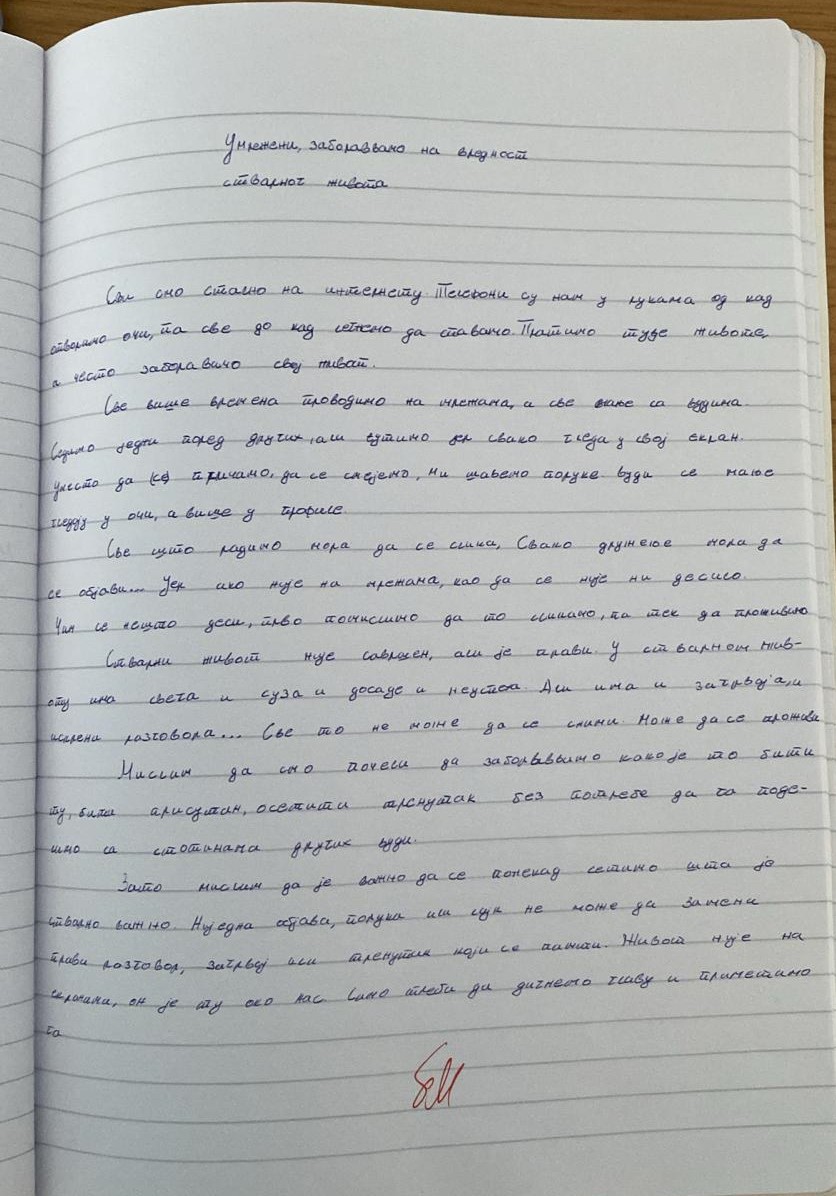 Умрежени, заборављамо на вредност
стварног живота
Сви смо стално на интернету. Телефони су нам у рукама од кад
отворимо очи, па све до кад легнемо да спавамо. Пратимо туђе животе,
а често заборавимо свој живот.
Све више времена проводимо на мрежама, а све мање са људима.
Седимо једни поред других, али ћутимо јер свако гледа у свој екран.
Уместо да причамо, да се смејемо, ми шаљемо поруке. Људи се мање
гледају у очи, а више у профиле.
Све што радимо мора да се слика, Свако дружење мора да
се објави... Јер ако није на мрежама, као да се није ни десило.
Чим се нешто деси, прво помислимо да то сликамо, па тек да проживимо
Стварни живот није савршен, али је прави. У стварном жив-
оту има света и суза и досаде и неуспеха. Али има и загрљаја, и
искрени разговора... Све то не може да се сними. Може да се проживи
Мислим да смо почели да заборављамо како је то бити
ту, бити присутан, осетити тренутак без потребе да га поде-
лимо са стотинама других људи.
Зато мислим да је важно да се понекад сетимо шта је
стварно важно. Ниједна објава, порука или лајк не може да замени
прави разговор, загрљај или тренутак који се памти. Живот није на
екранима, он је ту око нас. Само треба да дигнемо главу и приметимо
га